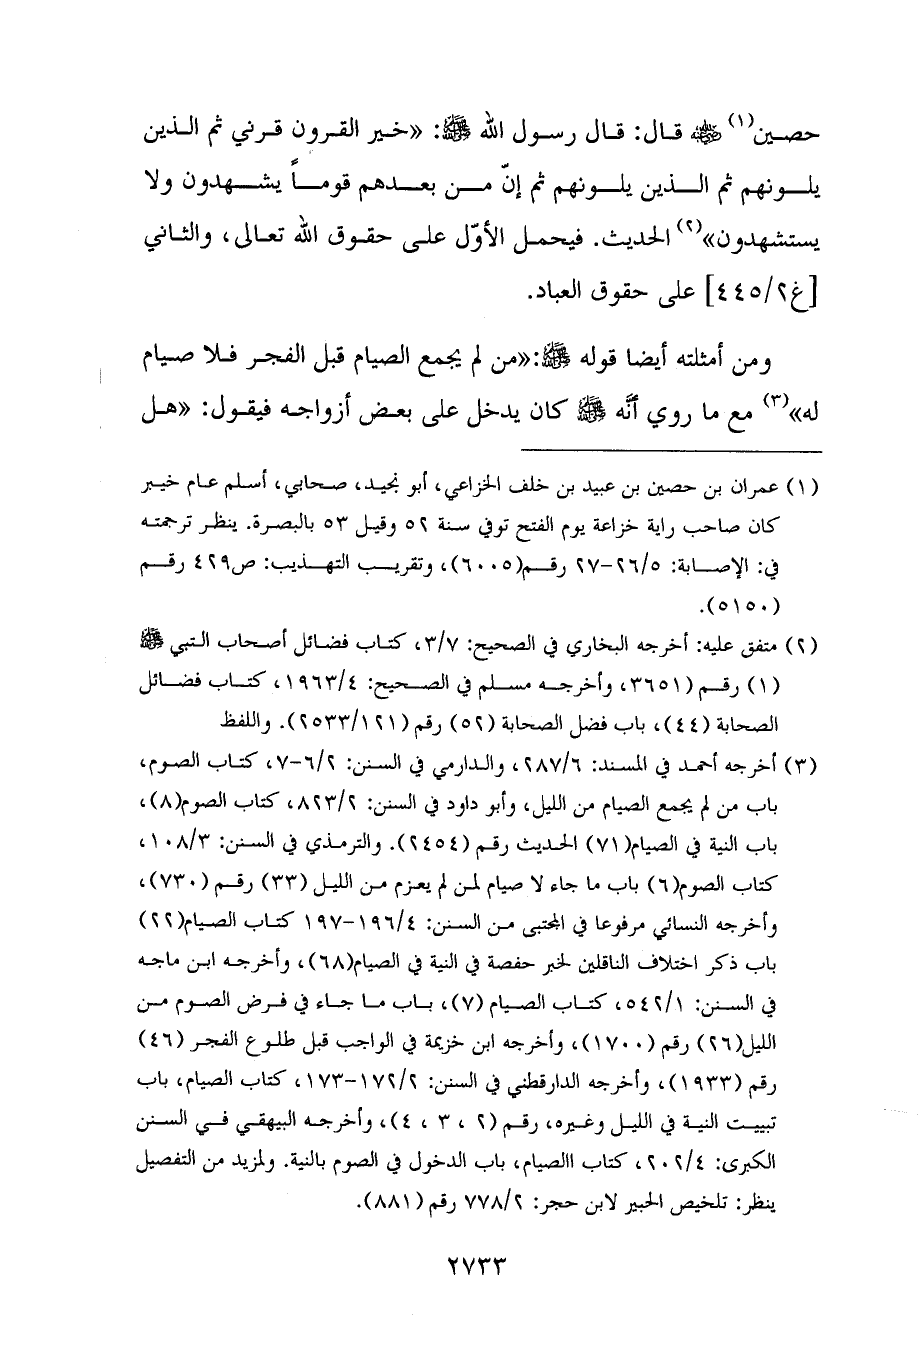 حصين(١) ﷺ قال: قال رسول الله ﷺ: «خير القرون قرني ثم الذين
يلونهم ثم الذين يلونهم ثم إنّ من بعدهم قوماً يشهدون ولا
يستشهدون»(٢) الحديث. فيحمل الأوّل على حقوق الله تعالى، والثاني
[غ٤٤٥/٢] على حقوق العباد.
ومن أمثلته أيضا قوله ﷺ:«من لم يجمع الصيام قبل الفجر فلا صيام
له»(٣) مع ما روي أنّه ﷺ كان يدخل على بعض أزواجه فيقول: «هل
(١) عمران بن حصين بن عبيد بن خلف الخزاعي، أبو نجيد، صحابي، أسلم عام خيبر
كان صاحب راية خزاعة يوم الفتح توفي سنة ٥٢ وقيل ٥٣ بالبصرة. ينظر ترجمته
في: الإصابة: ٢٦/٥-٢٧ رقم(٦٠٠٥)، وتقريب التهذيب: ص٤٢٩ رقم
(٥١٥٠).
(٢) متفق عليه: أخرجه البخاري في الصحيح: ٣/٧، كتاب فضائل أصحاب النبي ﷺ
(١) رقم (٣٦٥١، وأخرجه مسلم في الصحيح: ١٩٦٣/٤، كتاب فضائل
الصحابة (٤٤)، باب فضل الصحابة (٥٢) رقم (٢٥٣٣/١٢١). واللفظ
(٣) أخرجه أحمد في المسند: ٢٨٧/٦، والدارمي في السنن: ٦/٢-٧، كتاب الصوم،
باب من لم يجمع الصيام من الليل، وأبو داود في السنن: ٨٢٣/٢، كتاب الصوم(٨)،
باب النية في الصيام(٧١) الحديث رقم (٢٤٥٤). والترمذي في السنن: ١٠٨/٣،
كتاب الصوم(٦) باب ما جاء لا صيام لمن لم يعزم من الليل (٣٣) رقم (٧٣٠)،
وأخرجه النسائي مرفوعا في المجتبى من السنن: ١٩٦/٤-١٩٧ كتاب الصيام(٢٢)
باب ذكر اختلاف الناقلين لخبر حفصة في النية في الصيام(٦٨)، وأخرجه ابن ماجه
في السنن: ٥٤٢/١، كتاب الصيام (٧)، باب ما جاء في فرض الصوم من
الليل(٢٦) رقم (١٧٠٠)، وأخرجه ابن خزيمة في الواجب قبل طلوع الفجر (٤٦)
رقم (١٩٣٣)، وأخرجه الدارقطني في السنن: ١٧٢/٢-١٧٣، كتاب الصيام، باب
تبييت النية في الليل وغيره، رقم (٢ ، ٣ ، ٤)، وأخرجه البيهقي في السنن
الكبرى: ٢٠٢/٤، كتاب االصيام، باب الدخول في الصوم بالنية. ولمزيد من التفصيل
ينظر: تلخيص الحبير لابن حجر: ٧٧٨/٢ رقم (٨٨١).
٢٧٣٣